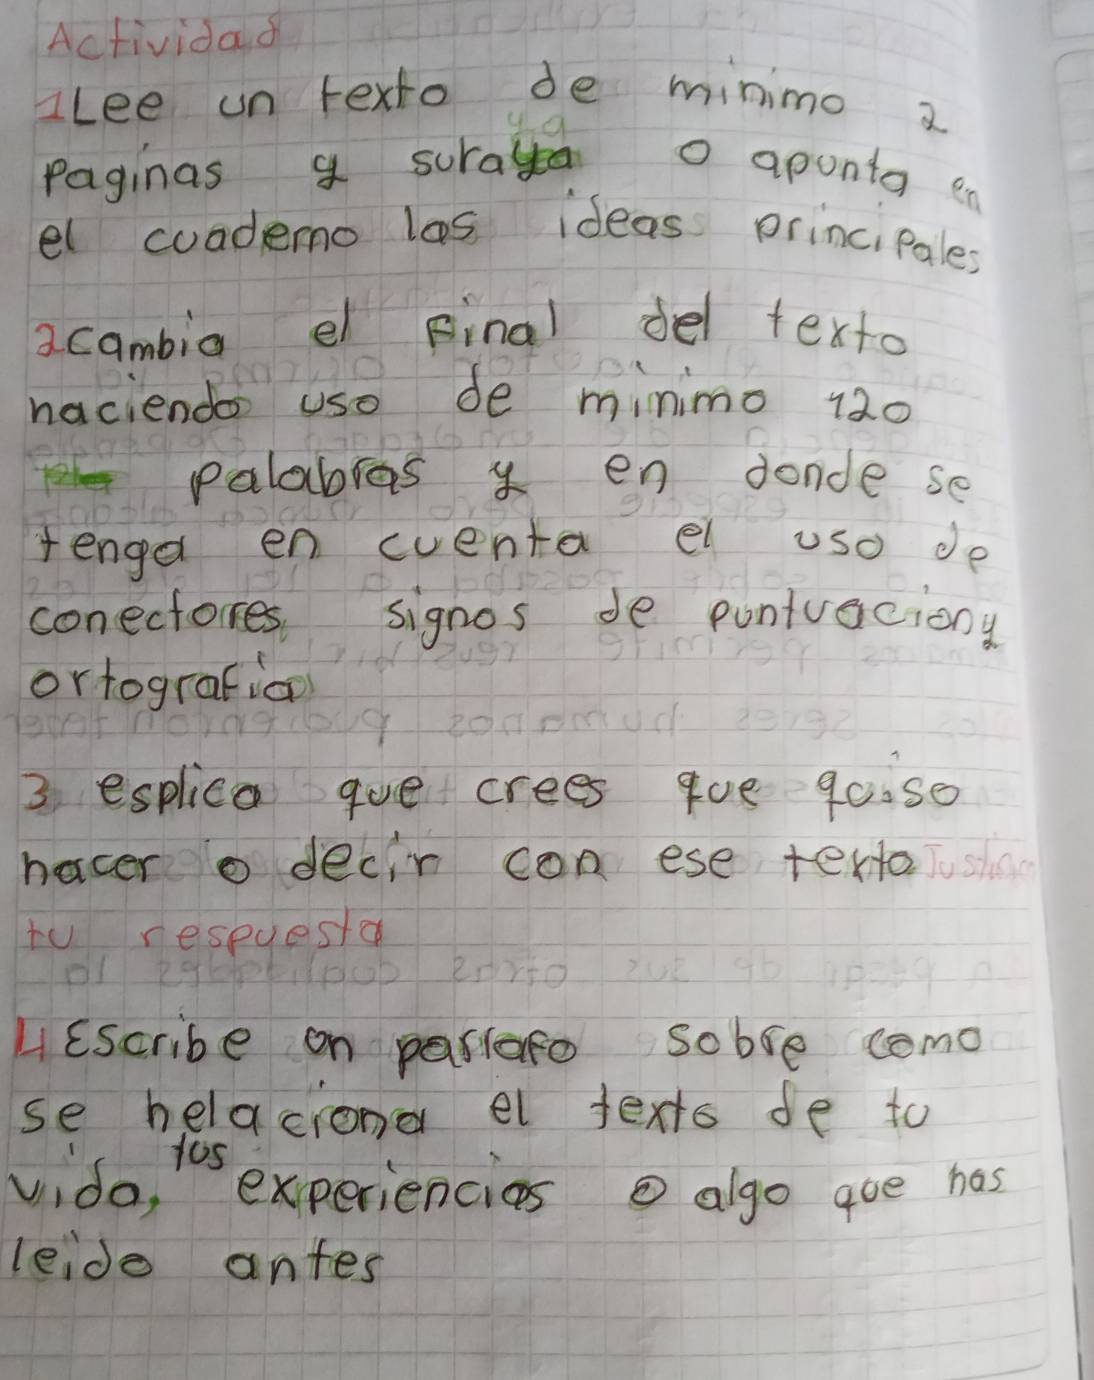 Actividad
1Lee un texto de minimo 2
paginas y suraya o apunta en
el cuaderno las ideas principales
2cambia el final del texto
haciendo uso de minimo 120
palabras y en donde se
tenga en cuenta el uso de
conectores signos de puntuacion y
ortografia
3 esplica que crees que quiso
hacer o decir con ese texto Justifica
tu respuesta
4 Escribe un parrafo sobre como
se helaciona el texto de tu
vida, tus experiencias o algo que has
leido antes